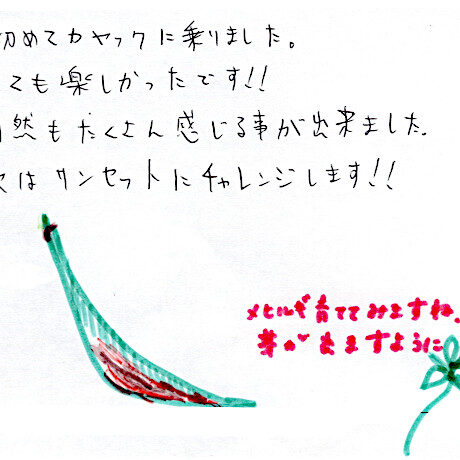 初めてカヤックに乗りました。
ても楽しかったです!!
然もたくさん感じる事が出来ました.
はサンセットにチャレンジします!!
メヒルギ育ててみますね.
芽が出ますように